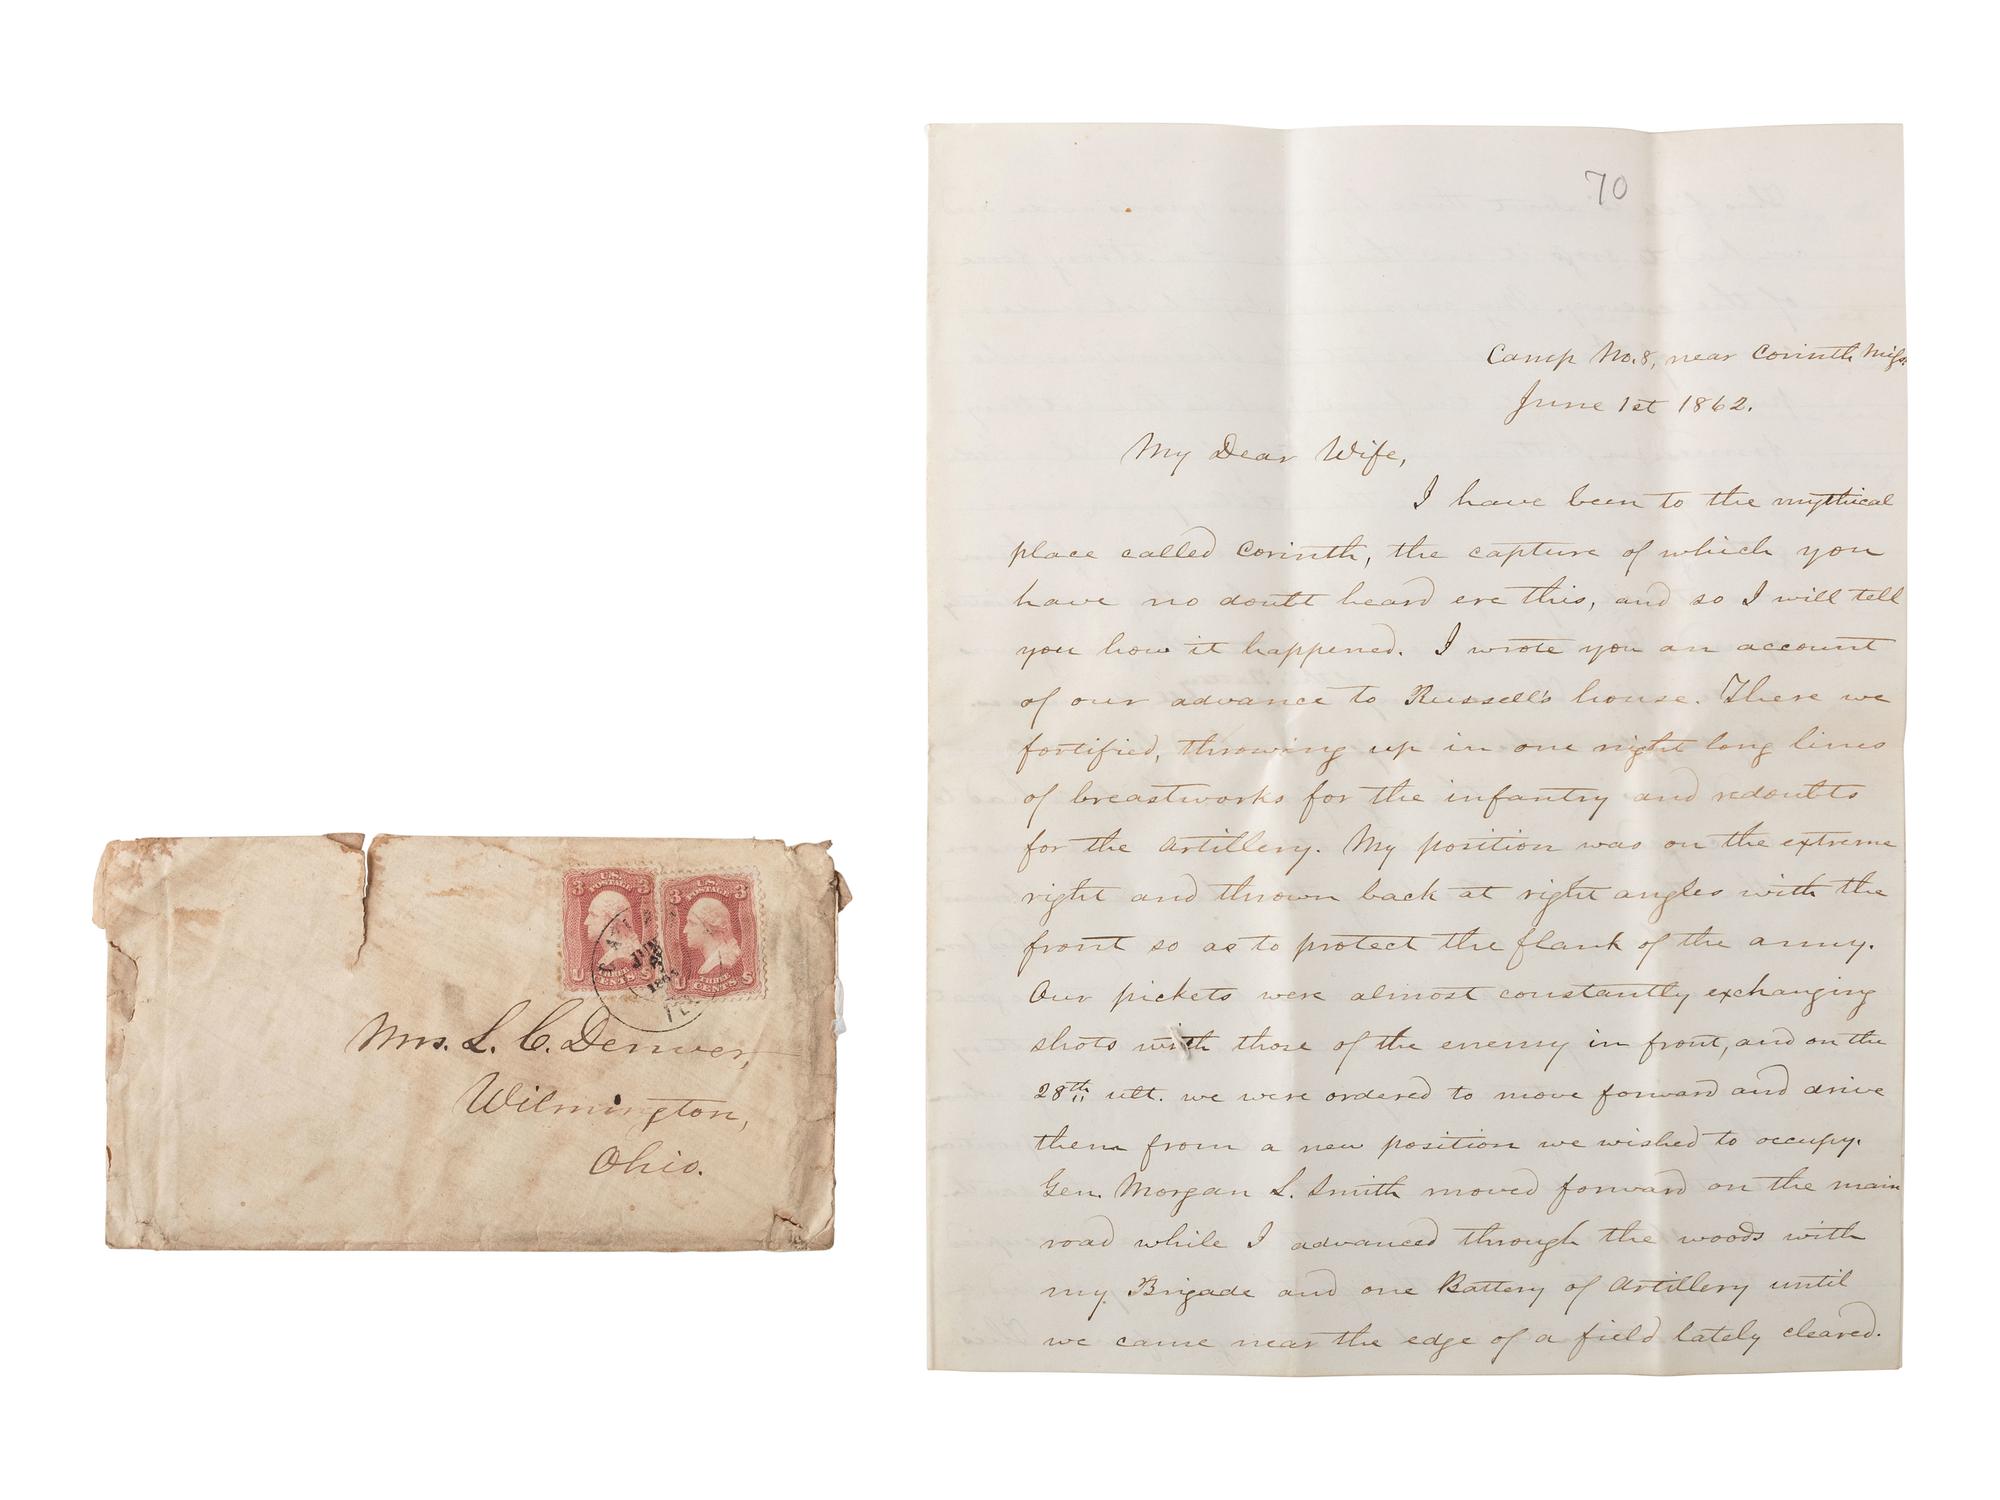 3 U.S. 3
POSTAGE
U THREE S
CENTS
3 U.S. 3
POSTAGE
U THREE S
CENTS
JUN
Mrs. L. C. Denver,
Wilmington,
Ohio.
70
Camp No. 8, near Corinth Miss.
June 1st 1862.
My Dear Wife,
I have been to the mythical
place called Corinth, the capture of which you
have no doubt heard ere this, and so I will tell
you how it happened. I wrote you an account
of our advance to Russell's house. There we
fortified, throwing up in one night long lines
of breastworks for the infantry and redoubts
for the artillery. My position was on the extreme
right and thrown back at right angles with the
front so as to protect the flank of the army.
Our pickets were almost constantly exchanging
shots with those of the enemy in front, and on the
28th ult. we were ordered to move forward and drive
them from a new position we wished to occupy.
Gen. Morgan L. Smith moved forward on the main
road while I advanced through the woods with
my Brigade and one Battery of Artillery until
we came near the edge of a field lately cleared.